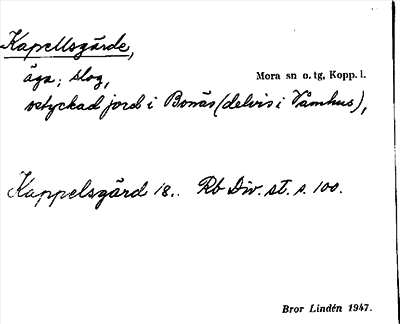 Kapellsgärde,
äga; slog, Mora sn o. tg, Kopp. l.
ostyckad jord i Bonäs (delvis i Våmhus),
Kappelsgärd 18.. Rb Div. st. s. 100.
Bror Lindén 1947.